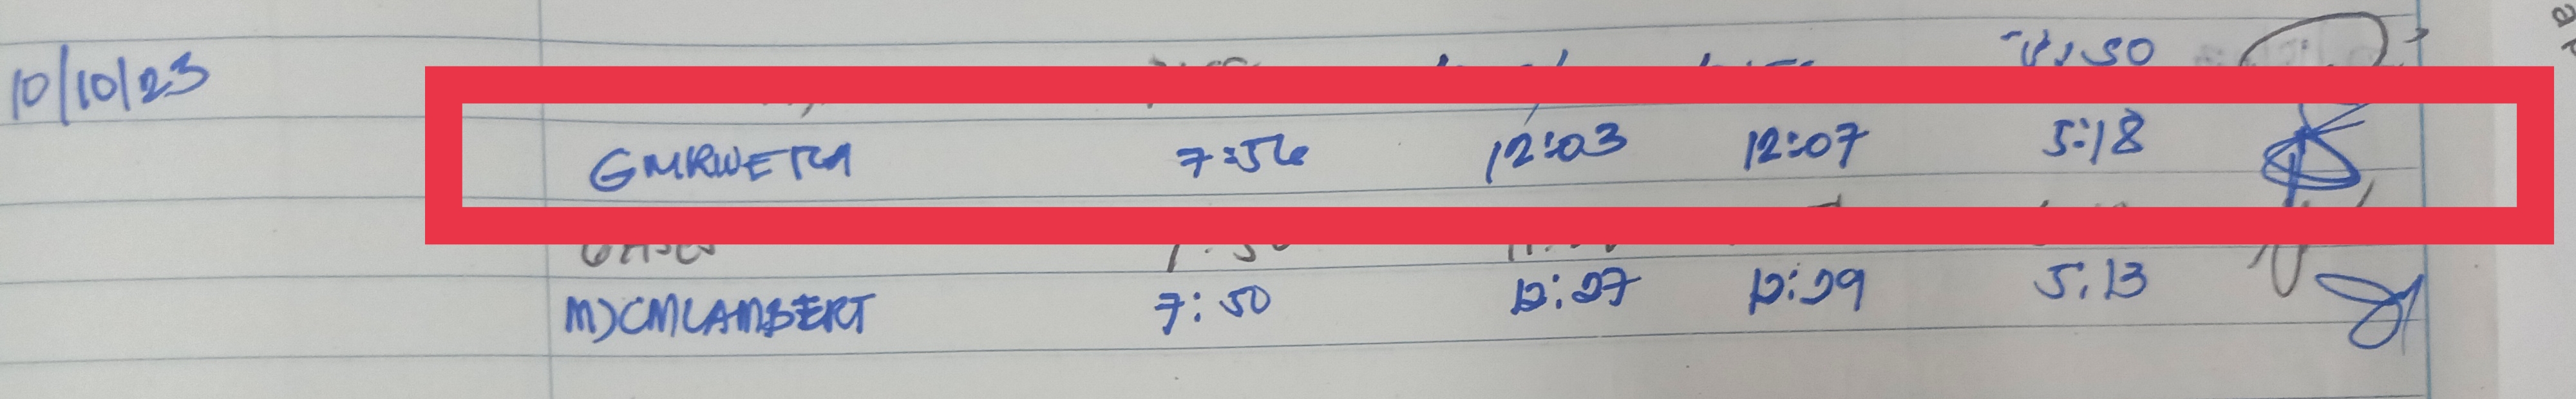 10/10/23
50
GMRWETA 7:56 12:03 12:07 5:18
MJCMLAMBERT 7:50 12:27 12:29 5:13